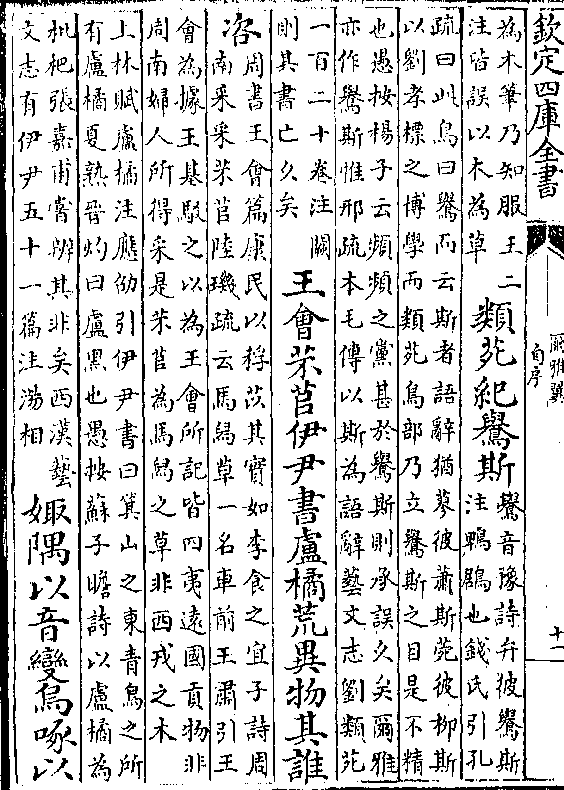 欽定四庫全書
爾雅翼
自序
十一
為木筆乃知服王二
注皆誤以木為草
類苑紀鸒斯
鸒音豫詩弁彼鸒斯
注鵯鶋也錢氏引孔
疏曰此鳥曰鸒而云斯者語辭猶蓼彼蕭斯菀彼柳斯
以劉孝標之博學而類苑鳥部乃立鸒斯之目是不精
也愚按楊子云頻頻之黨甚於鸒斯則承誤久矣爾雅
亦作鸒斯惟邢疏本毛傳以斯為語辭藝文志劉類苑
一百二十卷注闕
則其書亡久矣
王會芣苢伊尹書盧橘荒異物其誰
咨
周書王會篇康民以稃苡其實如李食之宜子詩周
南采采芣苢陸璣疏云馬舄草一名車前王肅引王
會為據王基駮之以為王會所記皆四夷遠國貢物非
周南婦人所得采是芣苢為馬舄之草非西戎之木
上林賦盧橘注應劭引伊尹書曰箕山之東青鳥之所
有盧橘夏熟晉灼曰盧黑也愚按蘇子瞻詩以盧橘為
枇杷張嘉甫嘗辨其非矣西漢藝
文志有伊尹五十一篇注湯相
娵隅以音變烏啄以